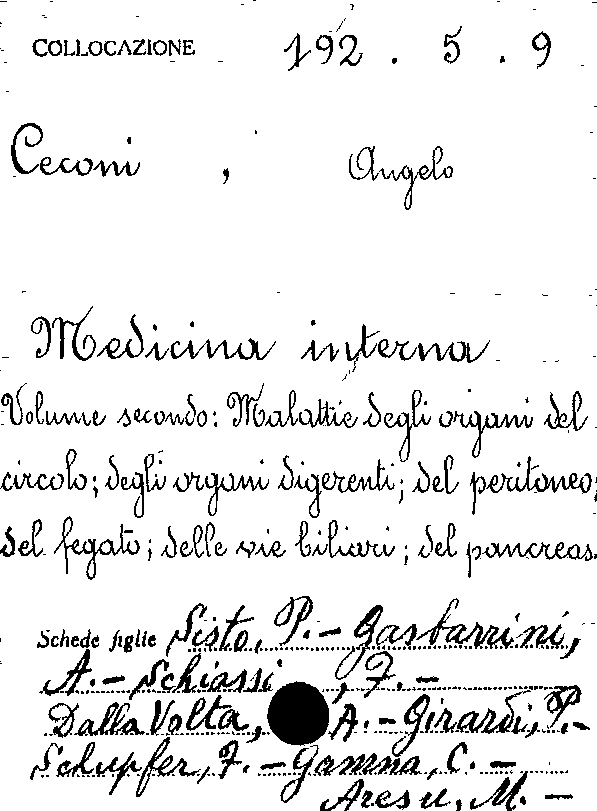 COLLOCAZIONE 192 . 5 . 9
Ceconi , Angelo
Medicina interna
Volume secondo: Malattie degli organi del
circolo; degli organi digerenti; del peritoneo;
del fegato; delle vie biliari; del pancreas.
Schede figlie Sisto, P.- Gasbarrini,
A.- Schiassi , F.-
Dalla Volta, A.- Girardi, P.-
Schupfer, F.- Gamna, C.-
Aresu, M.-